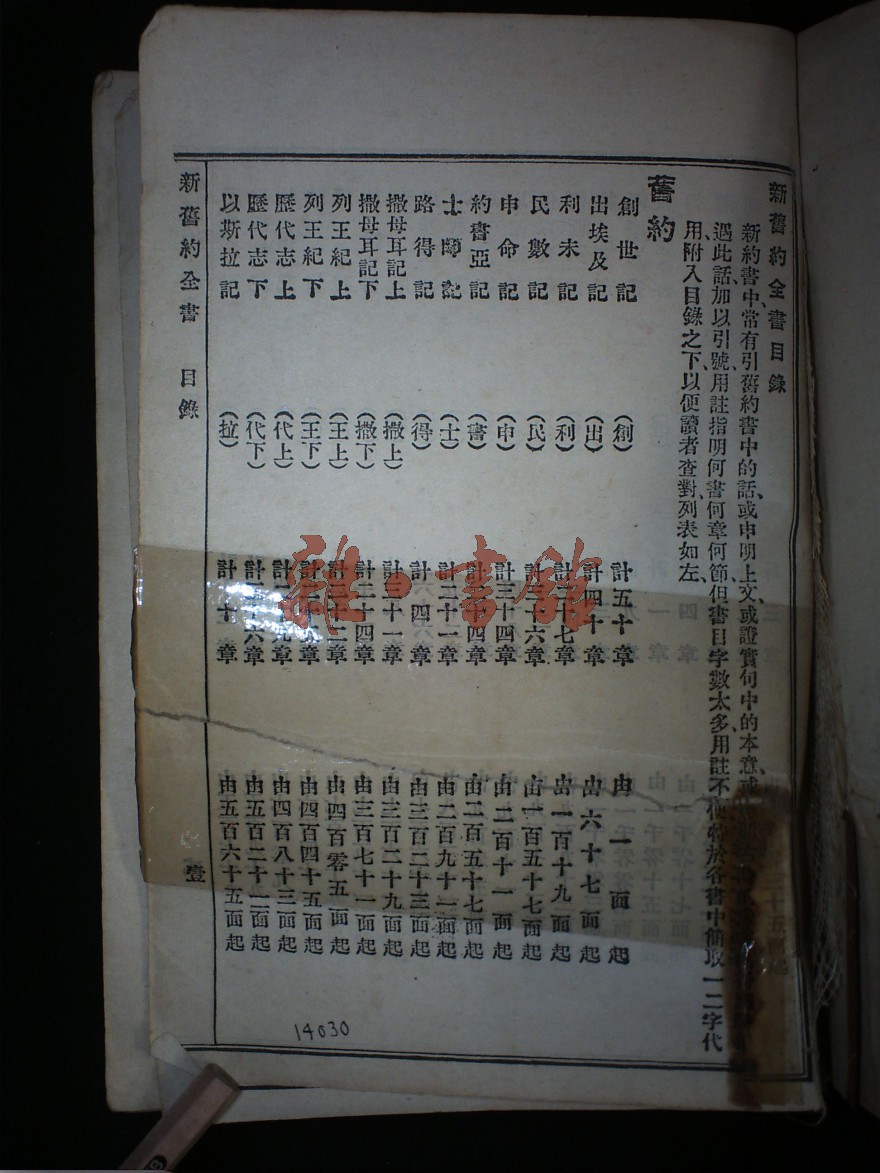 新舊約全書目錄
新約書中、常有引舊約書中的話、或申明上文、或證實句中的本意、或
遇此話、加以引號、用註指明何書何章何節、但書目字數太多、用註不便、特於各書中簡取一二字代
用、附入目錄之下、以便讀者查對、列表如左、
舊約
創世記 （創） 計五十章 由一面起
出埃及記 （出） 計四十章 由六十七面起
利未記 （利） 計二十七章 由一百十九面起
民數記 （民） 計三十六章 由一百五十七面起
申命記 （申） 計三十四章 由二百十一面起
約書亞記 （書） 計二十四章 由二百五十七面起
士師記 （士） 計二十一章 由二百九十一面起
路得記 （得） 計四章 由三百二十三面起
撒母耳記上 （撒上） 計三十一章 由三百二十九面起
撒母耳記下 （撒下） 計二十四章 由三百七十一面起
列王紀上 （王上） 計二十二章 由四百零五面起
列王紀下 （王下） 計二十五章 由四百四十五面起
歷代志上 （代上） 計二十九章 由四百八十三面起
歷代志下 （代下） 計三十六章 由五百二十一面起
以斯拉記 （拉） 計十章 由五百六十五面起
新舊約全書 目錄 壹
14030
雜·書館